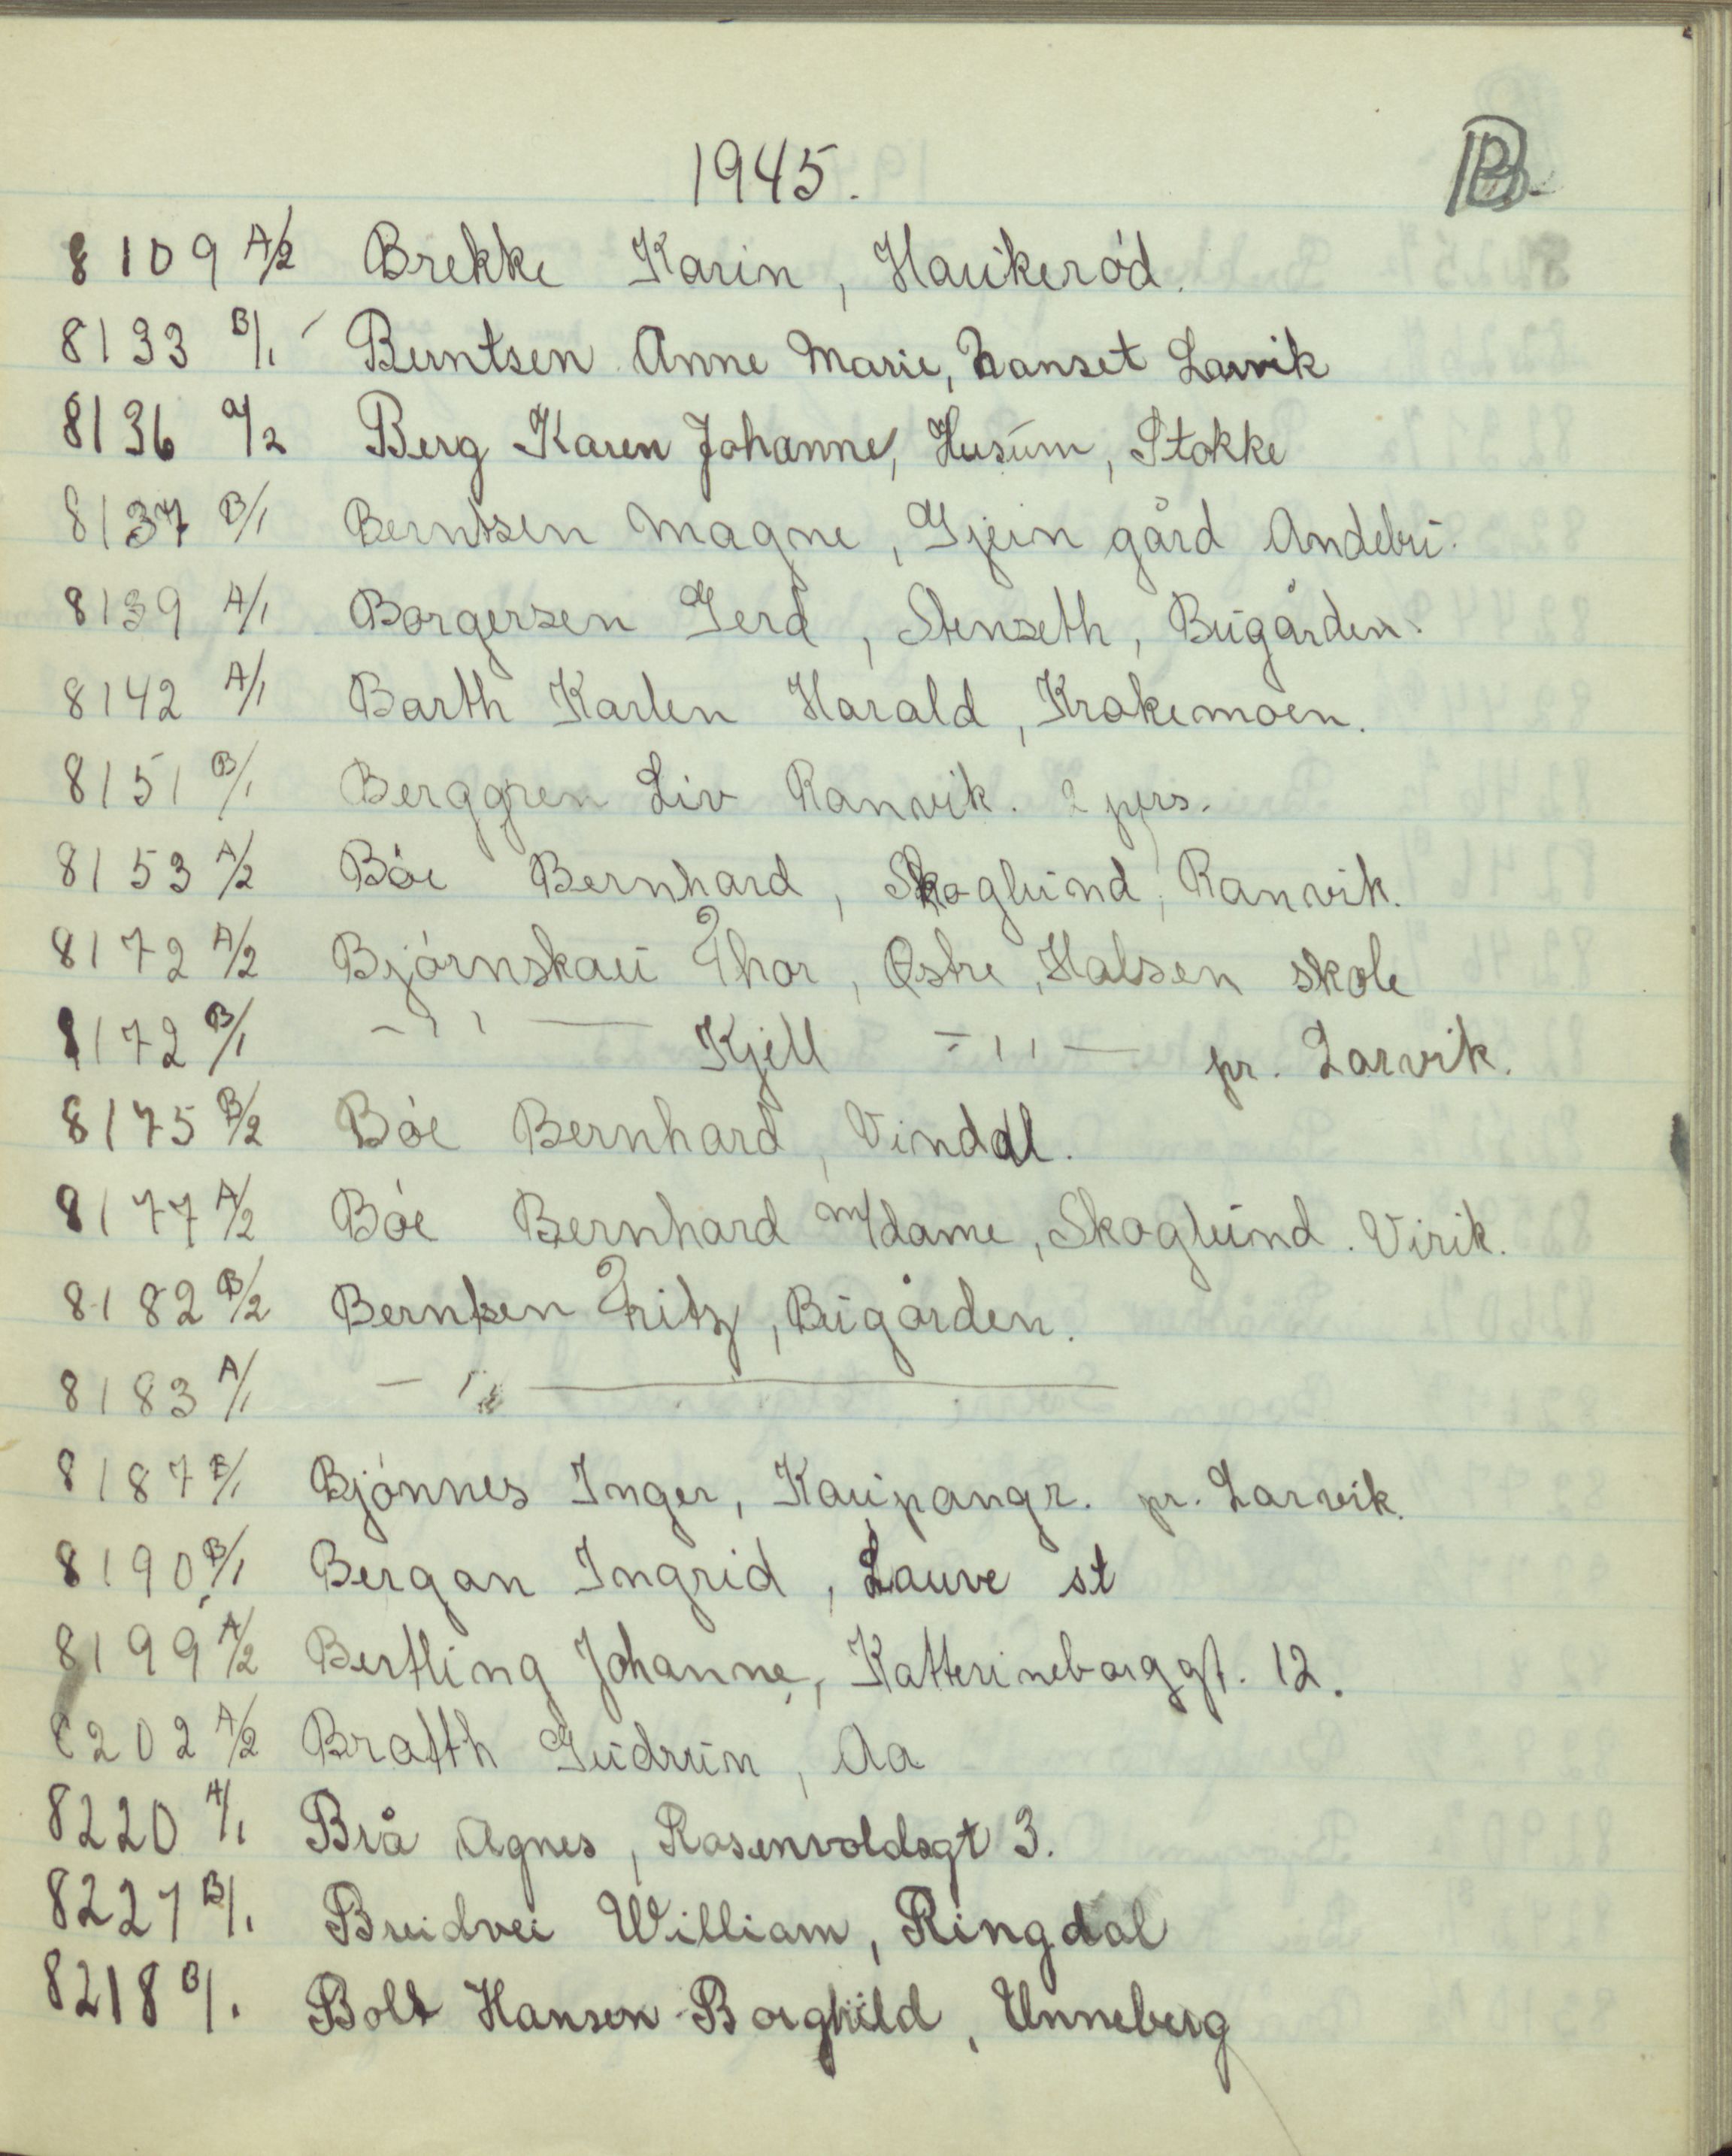 1945.
B
8109 A/2 Brekke Karin, Haukerød.
8133 B/1 Berntsen Anne Marie, Nanset Larvik
8136 a/2 Berg Karen Johanne, Husum, Stokke
8137 B/1 Berntsen Magne, Gjein gård Andebu.
8139 A/1 Borgersen Gerd, Stenseth, Bugården.
8142 A/1 Barth Karlen Harald, Krokemoen.
8151 B/1 Berggren Liv Ranvik. 2 pers.
8153 A/2 Bøe Bernhard, Skoglund, Ranvik.
8172 A/2 Bjørnskau Thor, Østre, Halsen skole
8172 B/1 –''— Kjell –''— pr. Larvik.
8175 B/2 Bøe Bernhard, Vindal.
8177 A/2 Bøe Bernhard m/dame, Skoglund. Virik.
8182 B/2 Berntsen Fritz, Bugården.
8183 A/1 –''—
8187 B/1 Bjønnes Inger, Kaupangr. pr. Larvik.
8190 B/1 Bergan Ingrid, Lauve st
8199 A/2 Bertling Johanne, Katterineborggt. 12.
8202 A/2 Bratth Gudrun, Aa
8220 A/1 Brå Agnes, Rosenvoldsgt 3.
8227 B/1. Breidvei William, Ringdal
8218 B/1. Bolt Hansen Borghild, Unneberg